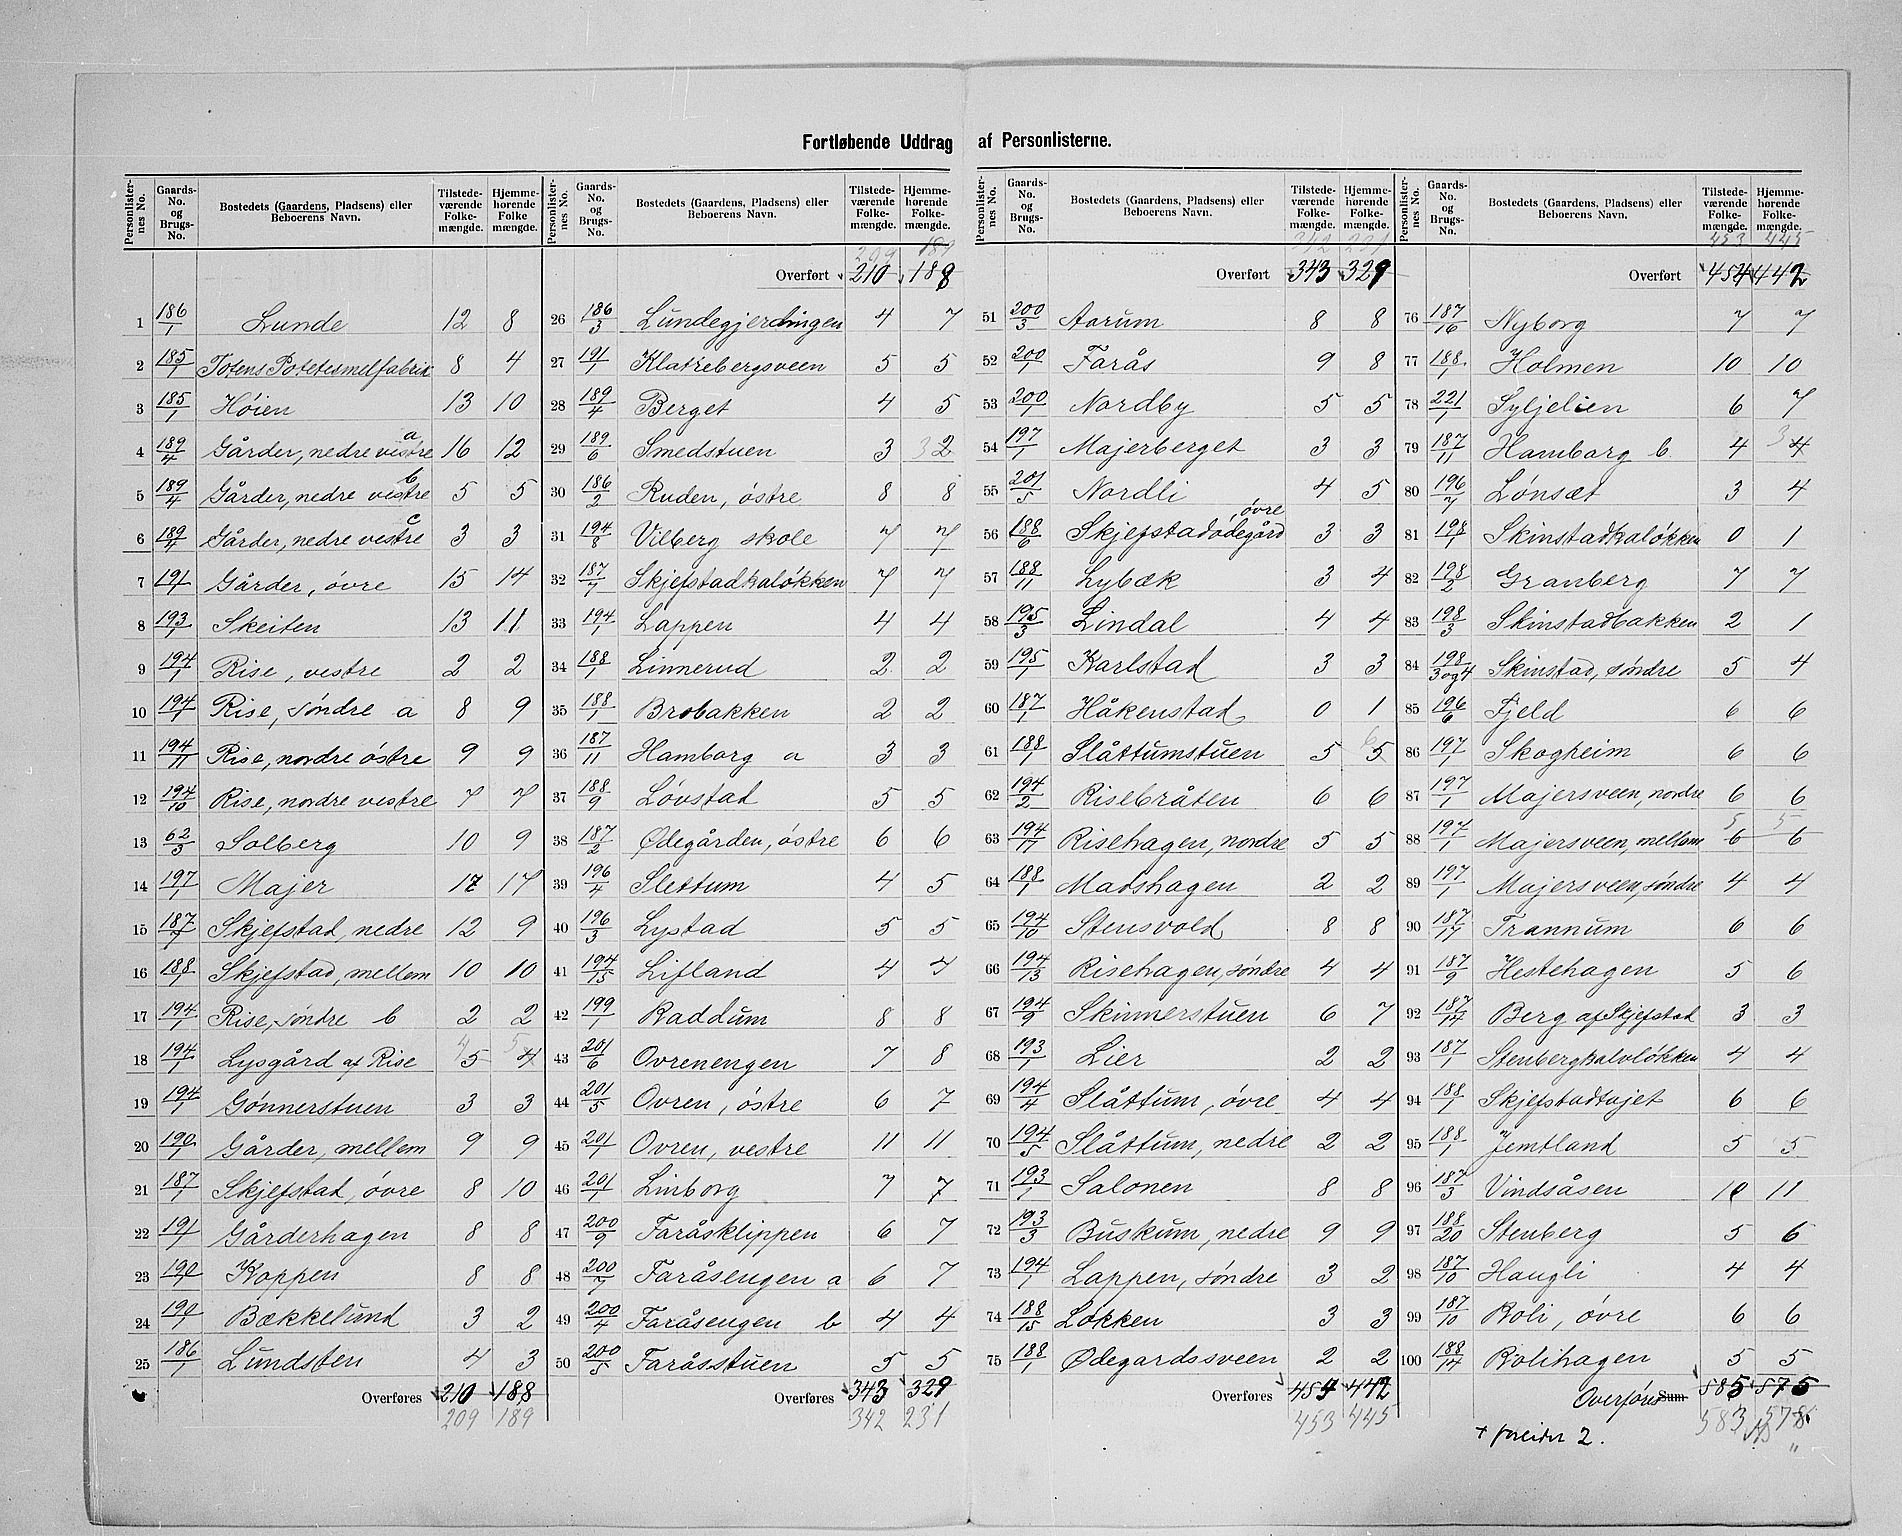 Fortløbende Uddrag af Personlisterne.
Personlister-nes No. | Gaards-No. og Brugs-No. | Bostedets (Gaardens, Pladsens) eller Beboerens Navn. | Tilstede-værende Folke-mængde. | Hjemme-hørende Folke mængde.
1 186/1 Lunde 12 8
2 185/1 Totens Potetesmelfabrik 8 4
3 185/1 Høien 13 10
4 189/4 Gårder, nedre vestre a 16 12
5 189/4 Gårder, nedre vestre b 5 5
6 189/4 Gårder, nedre vestre c 3 3
7 191/1 Gårder, övre 15 14
8 193/1 Skeiten 13 11
9 194/1 Rise, vestre 2 2
10 194/7 Rise, söndre a 8 9
11 194/11 Rise, nordre östre 9 9
12 194/10 Rise, nordre vestre 7 7
13 62/3 Solberg 10 9
14 197/1 Majer 17 17
15 187/7 Skjefstad, nedre 12 9
16 188/1 Skjefstad, mellem 10 10
17 194/1 Rise, söndre b 2 2
18 194/1 Lysgård af Rise 4 5 5 4
19 194/1 Gönnerstuen 3 3
20 190/1 Gårder, mellem 9 9
21 187/1 Skjefstad, övre 8 10
22 191/1 Gårderhagen 8 8
23 190/1 Koppen 8 8
24 190/1 Bækkelund 3 2
25 186/1 Lundsten 4 3
Overføres 210 188
209 189
Personlister-nes No. | Gaards-No. og Brugs-No. | Bostedets (Gaardens, Pladsens) eller Beboerens Navn. | Tilstede-værende Folke-mængde. | Hjemme-hørende Folke-mængde.
209 189
Overført 210 188
26 186/3 Lundegjerdingen 4 7
27 191/1 Klatrebergsveen 5 5
28 189/4 Berget 4 5
29 189/6 Smedstuen 3 3 2
30 186/2 Ruden, östre 8 8
31 194/8 Vilberg skole 7 7
32 187/7 Skjefstadkaløkken 7 7
33 194/1 Lappen 4 4
34 188/1 Linnerud 2 2
35 188/1 Brobakken 2 2
36 187/11 Hamborg a 3 3
37 188/9 Lövstad 5 5
38 187/2 Ødegården, östre 6 6
39 196/4 Slettum 4 5
40 196/3 Lystad 5 5
41 194/15 Lifland 4 4
42 199/1 Raddum 8 8
43 201/6 Ovrenengen 7 8
44 201/5 Ovren, östre 6 7
45 201/1 Ovren, vestre 11 11
46 201/1 Linborg 7 7
47 200/9 Faråsklippen 6 7
48 200/7 Faråsengen a 6 7
49 200/4 Faråsengen b 4 4
50 200/5 Faråsstuen 5 5
Overføres 343 329
342 231
Personlister-nes No. | Gaards-No. og Brugs-No. | Bostedets (Gaardens, Pladsens) eller Beboerens Navn. | Tilstede-værende Folke-mængde. | Hjemme-hørende Folke-mængde.
342 231
Overført 343 329
51 200/3 Aarum 8 8
52 200/1 Farås 9 8
53 200/1 Nordby 5 5
54 197/1 Majerberget 3 3
55 201/5 Nordli 4 5
56 188/6 Skjefstadödegård övre 3 3
57 188/11 Lybæk 3 4
58 195/3 Lindal 4 4
59 195/1 Karlstad 3 3
60 187/1 Håkenstad 0 1
61 188/1 Slåttumstuen 5 6 5
62 194/2 Risebråten 6 6
63 194/17 Risehagen, nordre 5 5
64 188/1 Madshagen 2 2
65 194/10 Stensvold 8 8
66 194/13 Risehagen, söndre 4 4
67 194/9 Skinnerstuen 6 7
68 193/1 Lier 2 2
69 194/4 Slåttum, övre 4 4
70 194/5 Slåttum, nedre 2 2
71 193/1 Salonen 8 8
72 193/3 Buskum, nedre 9 9
73 194/1 Lappen, söndre 3 2
74 188/15 Løkken 3 3
75 188/1 Ødegardssveen 2 2
Overføres 454 442
453 445
Personlister-nes No. | Gaards-No. og Brugs-No. | Bostedets (Gaardens, Pladsens) eller Beboerens Navn. | Tilstede-værende Folke-mængde. | Hjemme-hørende Folke-mængde.
453 445
Overført 454 442
76 187/16 Nyborg 7 7
77 188/1 Holmen 10 10
78 221/1 Syljelien 6 7
79 187/11 Hamborg b 4 3 4
80 196/7 Lönsæt 3 4
81 198/1 Skinstadkaløkken 0 1
82 198/2 Granberg 7 7
83 198/3 Skinstadbakken 2 1
84 198/3 og 4 Skinstad, söndre 5 4
85 196/6 Fjeld 6 6
86 197/1 Skogheim 6 6
87 197/1 Majersveen, nordre 6 6
88 197/1 Majersveen, mellem 5 6 5 6
89 197/1 Majersveen, söndre 4 4
90 187/17 Trannum 6 6
91 187/9 Hestehagen 5 6
92 187/14 Berg af Skjefstad 3 3
93 187/1 Stenbergkalvløkken 4 4
94 188/1 Skjefstadtajet 6 6
95 188/1 Jemtland 5 5
96 187/3 Vindsåsen 10 11
97 188/20 Stenberg 5 6
98 187/10 Haugli 4 4
99 187/10 Roli, övre 6 6
100 188/14 Rolihagen 5 5
Overføres Sum 585 575
583 578
2.